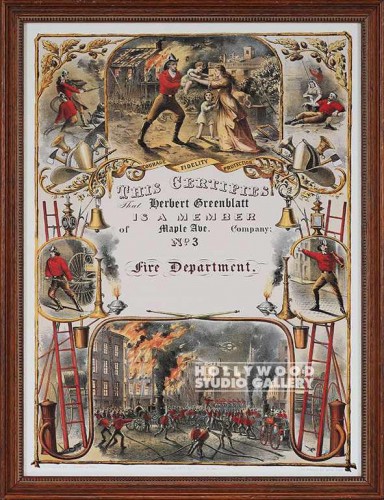 COURAGE FIDELITY PROTECTION
THIS CERTIFIES
That Herbert Greenblatt
IS A MEMBER
of Maple Ave. Company;
No 3
Fire Department.
HOLLYWOOD
STUDIO GALLERY